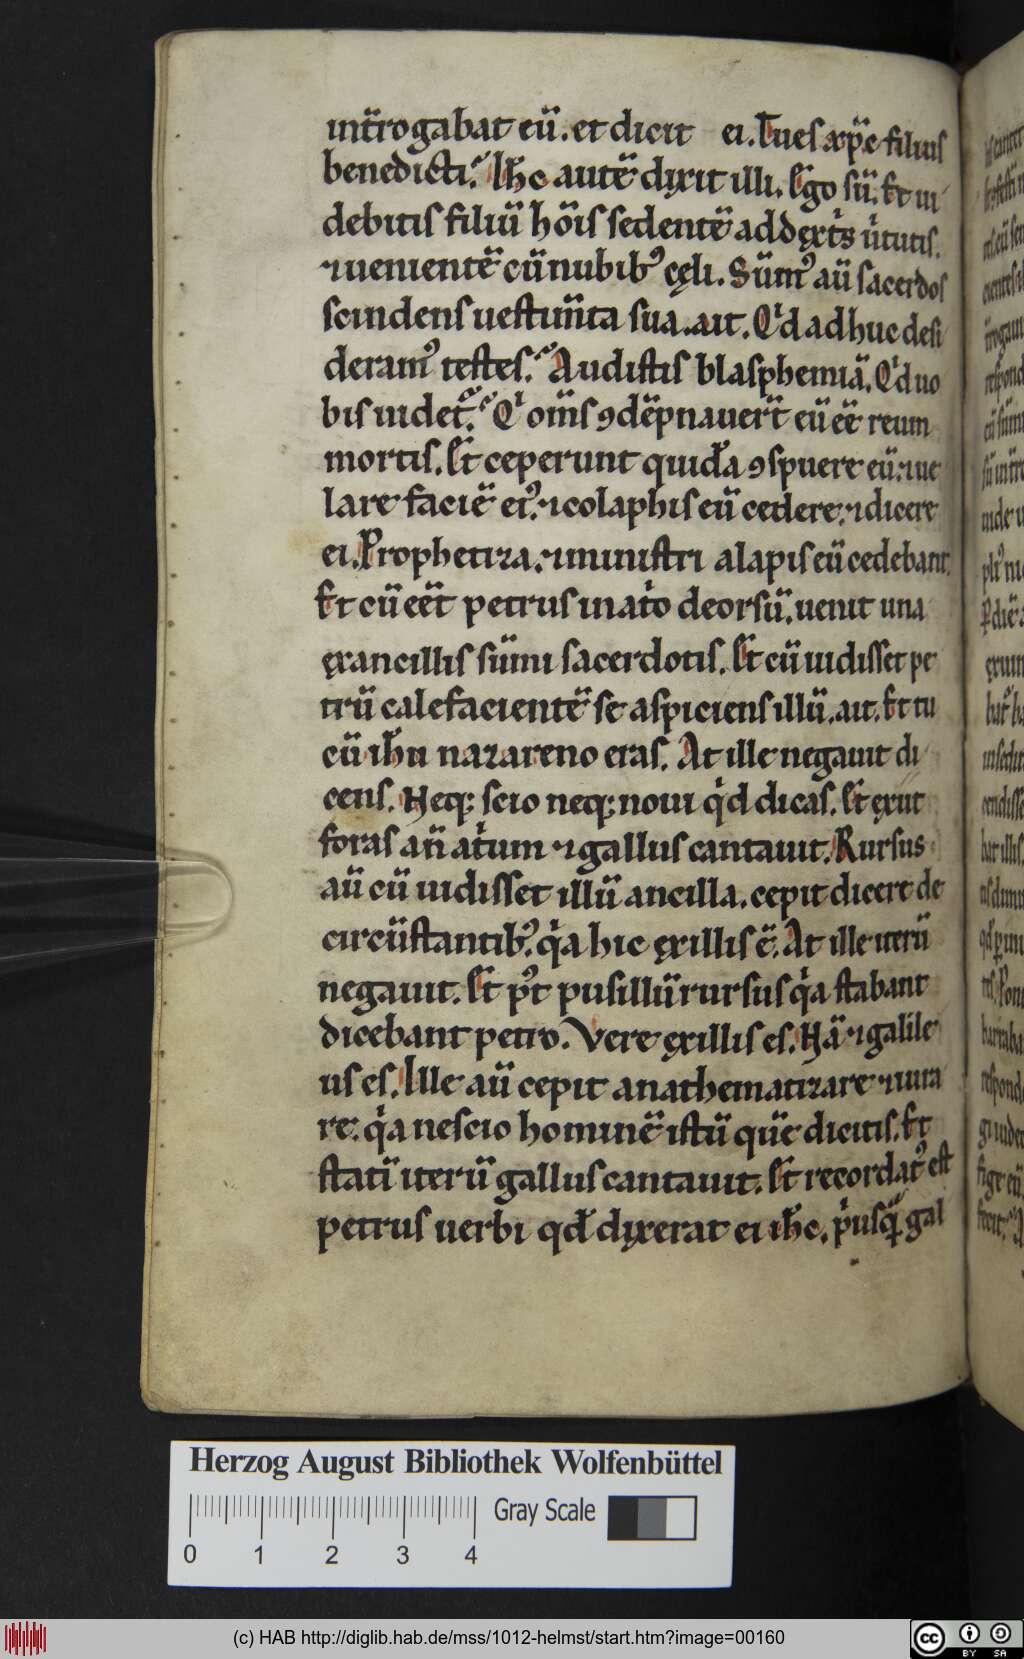 int̄rogabat eū. et dicit ei. Tu es xp̄c filius
benedicti? Ih̄c autē dixit illi. Ego sū. Et ui
debitis filiū hōis sedentē ad dext̉s uͥtutis.
⁊ uenientē cū nubibꝰ cęli. Sūmꝰ aū sacerdos
scindens uestim̄ta sua. ait. Qͥd adhuc desi
deramꝰ testes? Audistis blasphemiā. Qͥd uo
bis uidet̄? Qͥ om̄s ꝯdēpnauer̄t eū eē reum
mortis. Et ceperunt quidā ꝯspuere eū. ⁊ ue
lare faciē eiꝰ. ⁊ colaphis eū cedere. ⁊ dicere
ei. Prophetiza. ⁊ ministri alapis eū cedebant.
Et cū eēt petrus in atͥo deorsū. uenit una
ex ancillis sūmi sacerdotis. Et cū uidisset pe
trū calefacientē se aspiciens illū. ait. Et tu
cū ih̄u nazareno eras. At ille negauit di
cens. Neq; scio neq; noui qͥd dicas. Et exiit
foras an̄ atͥum ⁊ gallus cantauit. Rursus
aū cū uidisset illū ancilla. cepit dicere de
circūstantibꝰ. qͥa hic ex illis ē. At ille iterū
negauit. Et pꝰt pusillū rursus qͥa stabant
dicebant petro. Vere ex illis es. Nā ⁊ galile
us es. Ille aū cepit anathematizare ⁊ iura
re. qͥa nescio hominē istū quē dicitis. Et
statī iterū gallus cantauit. Et recordatꝰ est
petrus uerbi qđ dixerat ei ih̄c. pͥusqͣ̄ gal
Herzog August Bibliothek Wolfenbüttel
Gray Scale
0 1 2 3 4
(c) HAB http://diglib.hab.de/mss/1012-helmst/start.htm?image=00160
cc BY SA